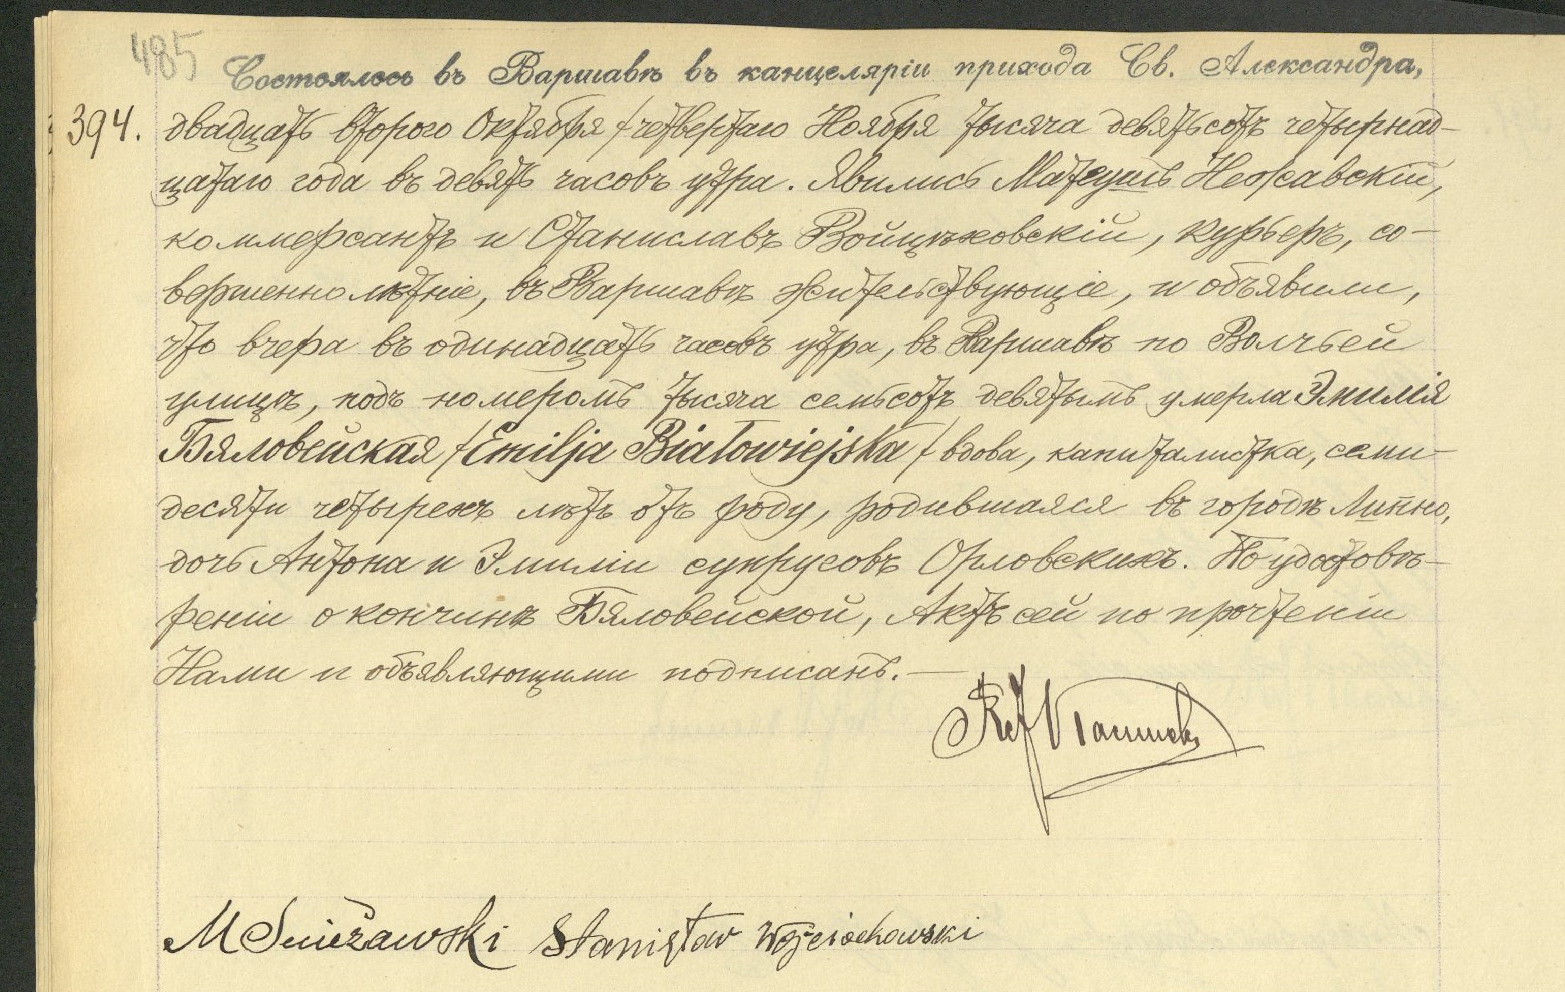 485
Состоялось въ Варшавѣ въ канцеляріи прихода Св. Александра,
394. двадцать второго Октября /четвертаго Ноября тысяча девятьсотъ четырнад-
цатаго года въ девять часовъ утра. Явились Матеушъ Нежавскій,
коммерсантъ и Станиславъ Войцѣховскій, курьеръ, со-
вершеннолѣтніе, въ Варшавѣ жительствующіе, и объявили,
что вчера въ одинадцать часовъ утра, въ Варшавѣ по Волчьей
улицѣ, подъ номеромъ тысяча семьсотъ девятымъ умерла Эмилія
Бяловейская /Emilja Białowiejska/ вдова, капиталистка, семи-
десяти четырехъ лѣтъ отъ роду, родившаяся въ городѣ Липно,
дочь Антона и Эмиліи супрусовъ Орловскихъ. По удостовѣ-
реніи о кончинѣ Бяловейской, Актъ сей по прочтеніи
Нами и объявляющими подписанъ.—
M Stanisław Wojciechowski